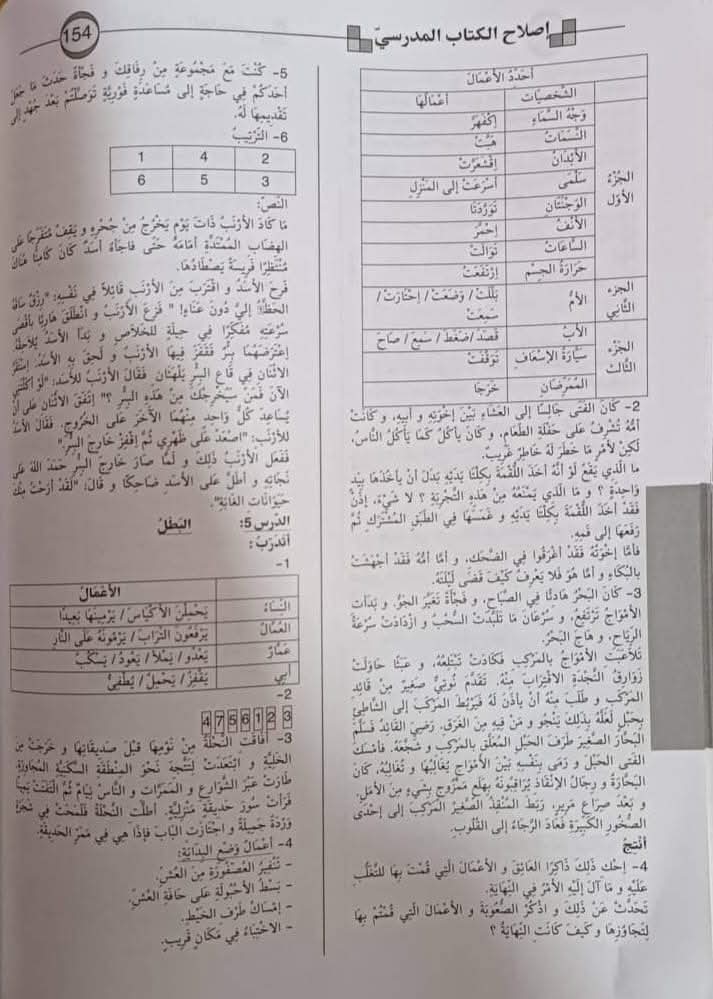 154
إصلاح الكتاب المدرسيّ
أُحَدِّدُ الأَعْمَالَ
الشَّخْصِيَّات أَعْمَالُهَا
الجُزْءُ الأَوَّل
وَجْهُ السَّمَاءِ اِكْفَهَرَّ
النَّسَمَاتُ هَبَّتْ
الأَبْدَانُ اِقْشَعَرَّتْ
سَلْمَى أَسْرَعَتْ إِلى المَنْزِلِ
الوَجْنَتَانِ تَوَرَّدَتَا
الأَنْفُ اِحْمَرَّ
السَّاعَاتُ تَوَالَتْ
حَرَارَةُ الجِسْمِ اِرْتَفَعَتْ
الجزء الثّاني
الأمّ بَلَّلَتْ/ وَضَعَتْ/ اِحْتَارَتْ/
سَمِعَتْ
الجُزْءُ الثّالث
الأَبُ قَصَدَ/ ضَغَطَ/ سَمِعَ/ صَاحَ
سَيَّارَةُ الإِسْعَافِ تَوَقَّفَتْ
المُمَرِّضَانِ خَرَجَا
2- كَانَ الفَتَى جَالِسًا إلى العَشَاءِ بَيْنَ إِخْوَتِهِ و أَبِيهِ، و كَانَتْ
أُمُّهُ تُشْرِفُ عَلى حَفْلَةِ الطَّعَامِ، و كَانَ يأكُلُ كَمَا يَأْكُلُ النَّاسُ،
لَكِنْ لأَمْرٍ مَا خَطَرَ لَهُ خَاطِرٌ غَرِيبٌ.
ما الّذي يَقَعُ لَوْ أَنَّهُ أَخَذَ اللُّقْمَةَ بِكِلْتَا يَدَيْهِ بَدَلَ أَنْ يَأْخُذَهَا بِيَدٍ
وَاحِدَةٍ ؟ و مَا الّذي يَمْنَعُهُ مِنْ هَذِهِ التَّجْرِبَةِ ؟ لا شَيْءَ. إِذَنْ
فَقَدْ أَخَذَ اللُّقْمَةَ بِكِلْتَا يَدَيْهِ و غَمَسَهَا في الطَّبَقِ المُشْتَرَكِ ثُمَّ
رَفَعَهَا إلى فَمِهِ.
فأمَّا إخْوَتُهُ فَقَدْ أَغْرَقُوا في الضَّحِكِ، و أمَّا أُمُّهُ فَقَدْ أَجْهَشَتْ
بِالبُكَاءِ و أمَّا هُوَ فَلا يَعْرِفُ كَيْفَ قَضَى لَيْلَتَهُ.
3- كَانَ البَحْرُ هَادِئًا في الصَّبَاحِ، و فَجْأَةً تَغَيَّرَ الجَوُّ. و بَدَأَت
الأَمْوَاجُ تَرْتَفِعُ، و سُرْعَانَ مَا تَلَبَّدَتِ السُّحُبُ و ازْدَادَتْ سُرْعَةُ
الرِّيَاحِ، و هَاجَ البَحْرُ.
تَلاَعَبَتِ الأَمْوَاجُ بالمَرْكِبِ فَكَادَتْ تَبْتَلِعُهُ، و عَبَثًا حَاوَلَتْ
زَوَارِقُ النَّجْدَةِ الاقْتِرَابَ مِنْهُ. تَقَدَّمَ نُوتِيٌّ صَغِيرٌ مِنْ قَائِدِ
المَرْكَبِ و طَلَبَ مِنْهُ أَنْ يَأْذَنَ لَهُ فَيَرْبِطَ المَرْكَبَ إلى الشَّاطِئِ
بِحَبْلٍ لَعَلَّهُ بِذَلِكَ يَنْجُو و مَنْ فِيهِ مِنَ الغَرَقِ. رَضِيَ القَائِدُ فَسَلَّمَ
البَحَّارَ الصَّغِيرَ طَرَفَ الحَبْلِ المُعَلَّقِ بالمَرْكبِ و شَجَّعَهُ. فأمْسَكَ
الفَتى الحَبْلَ و رَمَى بِنَفْسِهِ بَيْنَ الأَمْوَاجِ يُغَالِبُهَا و تُغَالِبُهُ. كَانَ
البَحَّارَةُ و رِجَالُ الإِنْقَاذِ يُرَاقِبُونَهُ بِهَلَعٍ مَمْزُوجٍ بِشَيْءٍ مِنَ الأَمَلِ.
و بَعْدَ صِرَاعٍ مَرِيرٍ، رَبَطَ المُنْقِذُ الصَّغِيرُ المَرْكِبَ إلى إحْدَى
الصُّخُورِ الكَبِيرَةِ فَعَادَ الرَّجَاءُ إلى القُلُوبِ.
أُنْتِجُ
4- اِحْكِ ذَلِكَ ذَاكِرًا العَائِقَ و الأَعْمَالَ الّتي قُمْتَ بِهَا لِلتَّغَلُّبِ
عَلَيْهِ و مَا آلَ إِلَيْهِ الأَمْرُ في النِّهَايَةِ.
تَحَدَّثْ عَنْ ذَلِكَ و اذْكُرْ الصُّعُوبَةَ و الأَعْمَالَ الّتي قُمْتُمْ بِهَا
لِتَجَاوُزِهَا و كَيْفَ كَانَتِ النِّهَايَةُ ؟
5- كُنْتَ مَعَ مَجْمُوعَةٍ مِنْ رِفَاقِكَ و فَجْأَةً حَدَثَ مَا جَعَلَ
أَحَدَكُمْ في حَاجَةٍ إلى مُسَاعَدَةٍ فَوْرِيَّةٍ تَوَصَّلْتُمْ بَعْدَ جُهْدٍ إلى
تَقْدِيمِهَا لَهُ.
6- التَّرْتِيبُ
2 4 1
3 5 6
النَّصّ:
مَا كَادَ الأَرْنَبُ ذَاتَ يَوْمٍ يَخْرُجُ مِنْ جُحْرِهِ و يَقِفُ مُتَفَرِّجًا عَلى
الهِضَابِ المُمْتَدَّةِ أَمَامَهُ حَتَّى فَاجَأَهُ أَسَدٌ كَانَ كَامِنًا هُنَاكَ
مُنْتَظِرًا فَرِيسَةً يَصْطَادُهَا.
فَرِحَ الأَسَدُ و اقْتَرَبَ مِنَ الأَرْنَبِ قَائِلاً في نَفْسِهِ: "رِزْقٌ سَاقَهُ
الحَظُّ إليَّ دُونَ عَنَاءٍ! " فَزِعَ الأَرْنَبُ و انْطَلَقَ هَارِبًا بِأَقْصَى
سُرْعَتِهِ مُفَكِّرًا في حِيلَةٍ لِلخَلاصِ و بَدَأَ الأَسَدُ يُلاَحِقُهُ
اِعْتَرَضَهُمَا بِئْرٌ فَقَفَزَ فِيهَا الأَرْنَبُ و لَحِقَ بِهِ الأَسَدُ. اِسْتَقَرَّ
الاثْنَانِ في قَاعِ البِئْرِ يَلْهَثَانِ. فَقَالَ الأَرْنَبُ للأَسَدِ: "لَوْ أَكَلْتَنِي
الآنَ فَمَنْ سَيُخْرِجُكَ مِنْ هَذِهِ البِئْرِ ؟" اِتَّفَقَ الاثْنَانِ عَلى أَنْ
يُسَاعِدَ كُلُّ وَاحِدٍ مِنْهُمَا الآخَرَ عَلى الخُرُوجِ. فَقَالَ الأَسَدُ
للأَرْنَبِ: "اصْعَدْ عَلَى ظَهْرِي ثُمَّ اقْفِزْ خَارِجَ البِئْرِ"
فَفَعَلَ الأَرْنَبُ ذَلِكَ و لَمَّا صَارَ خَارِجَ البِئْرِ حَمَدَ اللهَ عَلى
نَجَاتِهِ و أَطَلَّ عَلى الأَسَدِ ضَاحِكًا و قَالَ: "لَقَدْ أَرَحْتُ مِنْكَ
حَيَوَانَاتِ الغَابَةِ".
الدّرس 5: البَطَلُ
أتدرّبُ:
1-
الأَعْمَالُ
النِّسَاءُ يَحْمِلْنَ الأَكْيَاسَ/ يَرْمِينَهَا بَعِيدًا
العُمَّالُ يَرْفَعُونَ التُّرَابَ/ يَرْمُونَهُ عَلَى النَّارِ
عَمَّارٌ يَعْدُو/ يَمْلأُ/ يَعُودُ/ يَسْكُبُ
أبي يَقْفِزُ/ يَحْمِلُ/ يُطْفِئُ
2-
3 2 1 6 5 7 4
3- أَفَاقَتِ النَّحْلَةُ مِنْ نَوْمِهَا قَبْلَ صَدِيقَاتِهَا و خَرَجَتْ مِنَ
الخَلِيَّةِ و ابْتَعَدَتْ لِتَتَّجِهَ نَحْوَ المِنْطَقَةِ السَّكَنِيَّةِ المُجَاوِرَةِ.
طَارَتْ عَبْرَ الشَّوَارِعِ و المَمَرَّاتِ و النَّاسُ نِيَامٌ ثُمَّ الْتَفَتَتْ يَمِينًا
فَرَأَتْ سُورَ حَدِيقَةٍ مَنْزِلِيَّةٍ. أَطَلَّتِ النَّحْلَةُ فَلَمَحَتْ في شَجَرَةٍ
وَرْدَةً جَمِيلَةً و اجْتَازَتِ البَابَ فَإذَا هِي في مَمَرِّ الحَدِيقَةِ.
4- أَعْمَالُ وَضْعِ البِدَايَةِ:
- تَنْفِيرُ العُصْفُورَةِ مِنَ العُشِّ.
- بَسْطُ الأُحْبُولَةِ عَلى حَافَةِ العُشِّ.
- إِمْسَاكُ طَرَفِ الخَيْطِ.
- الاخْتِبَاءُ في مَكَانٍ قَرِيبٍ.